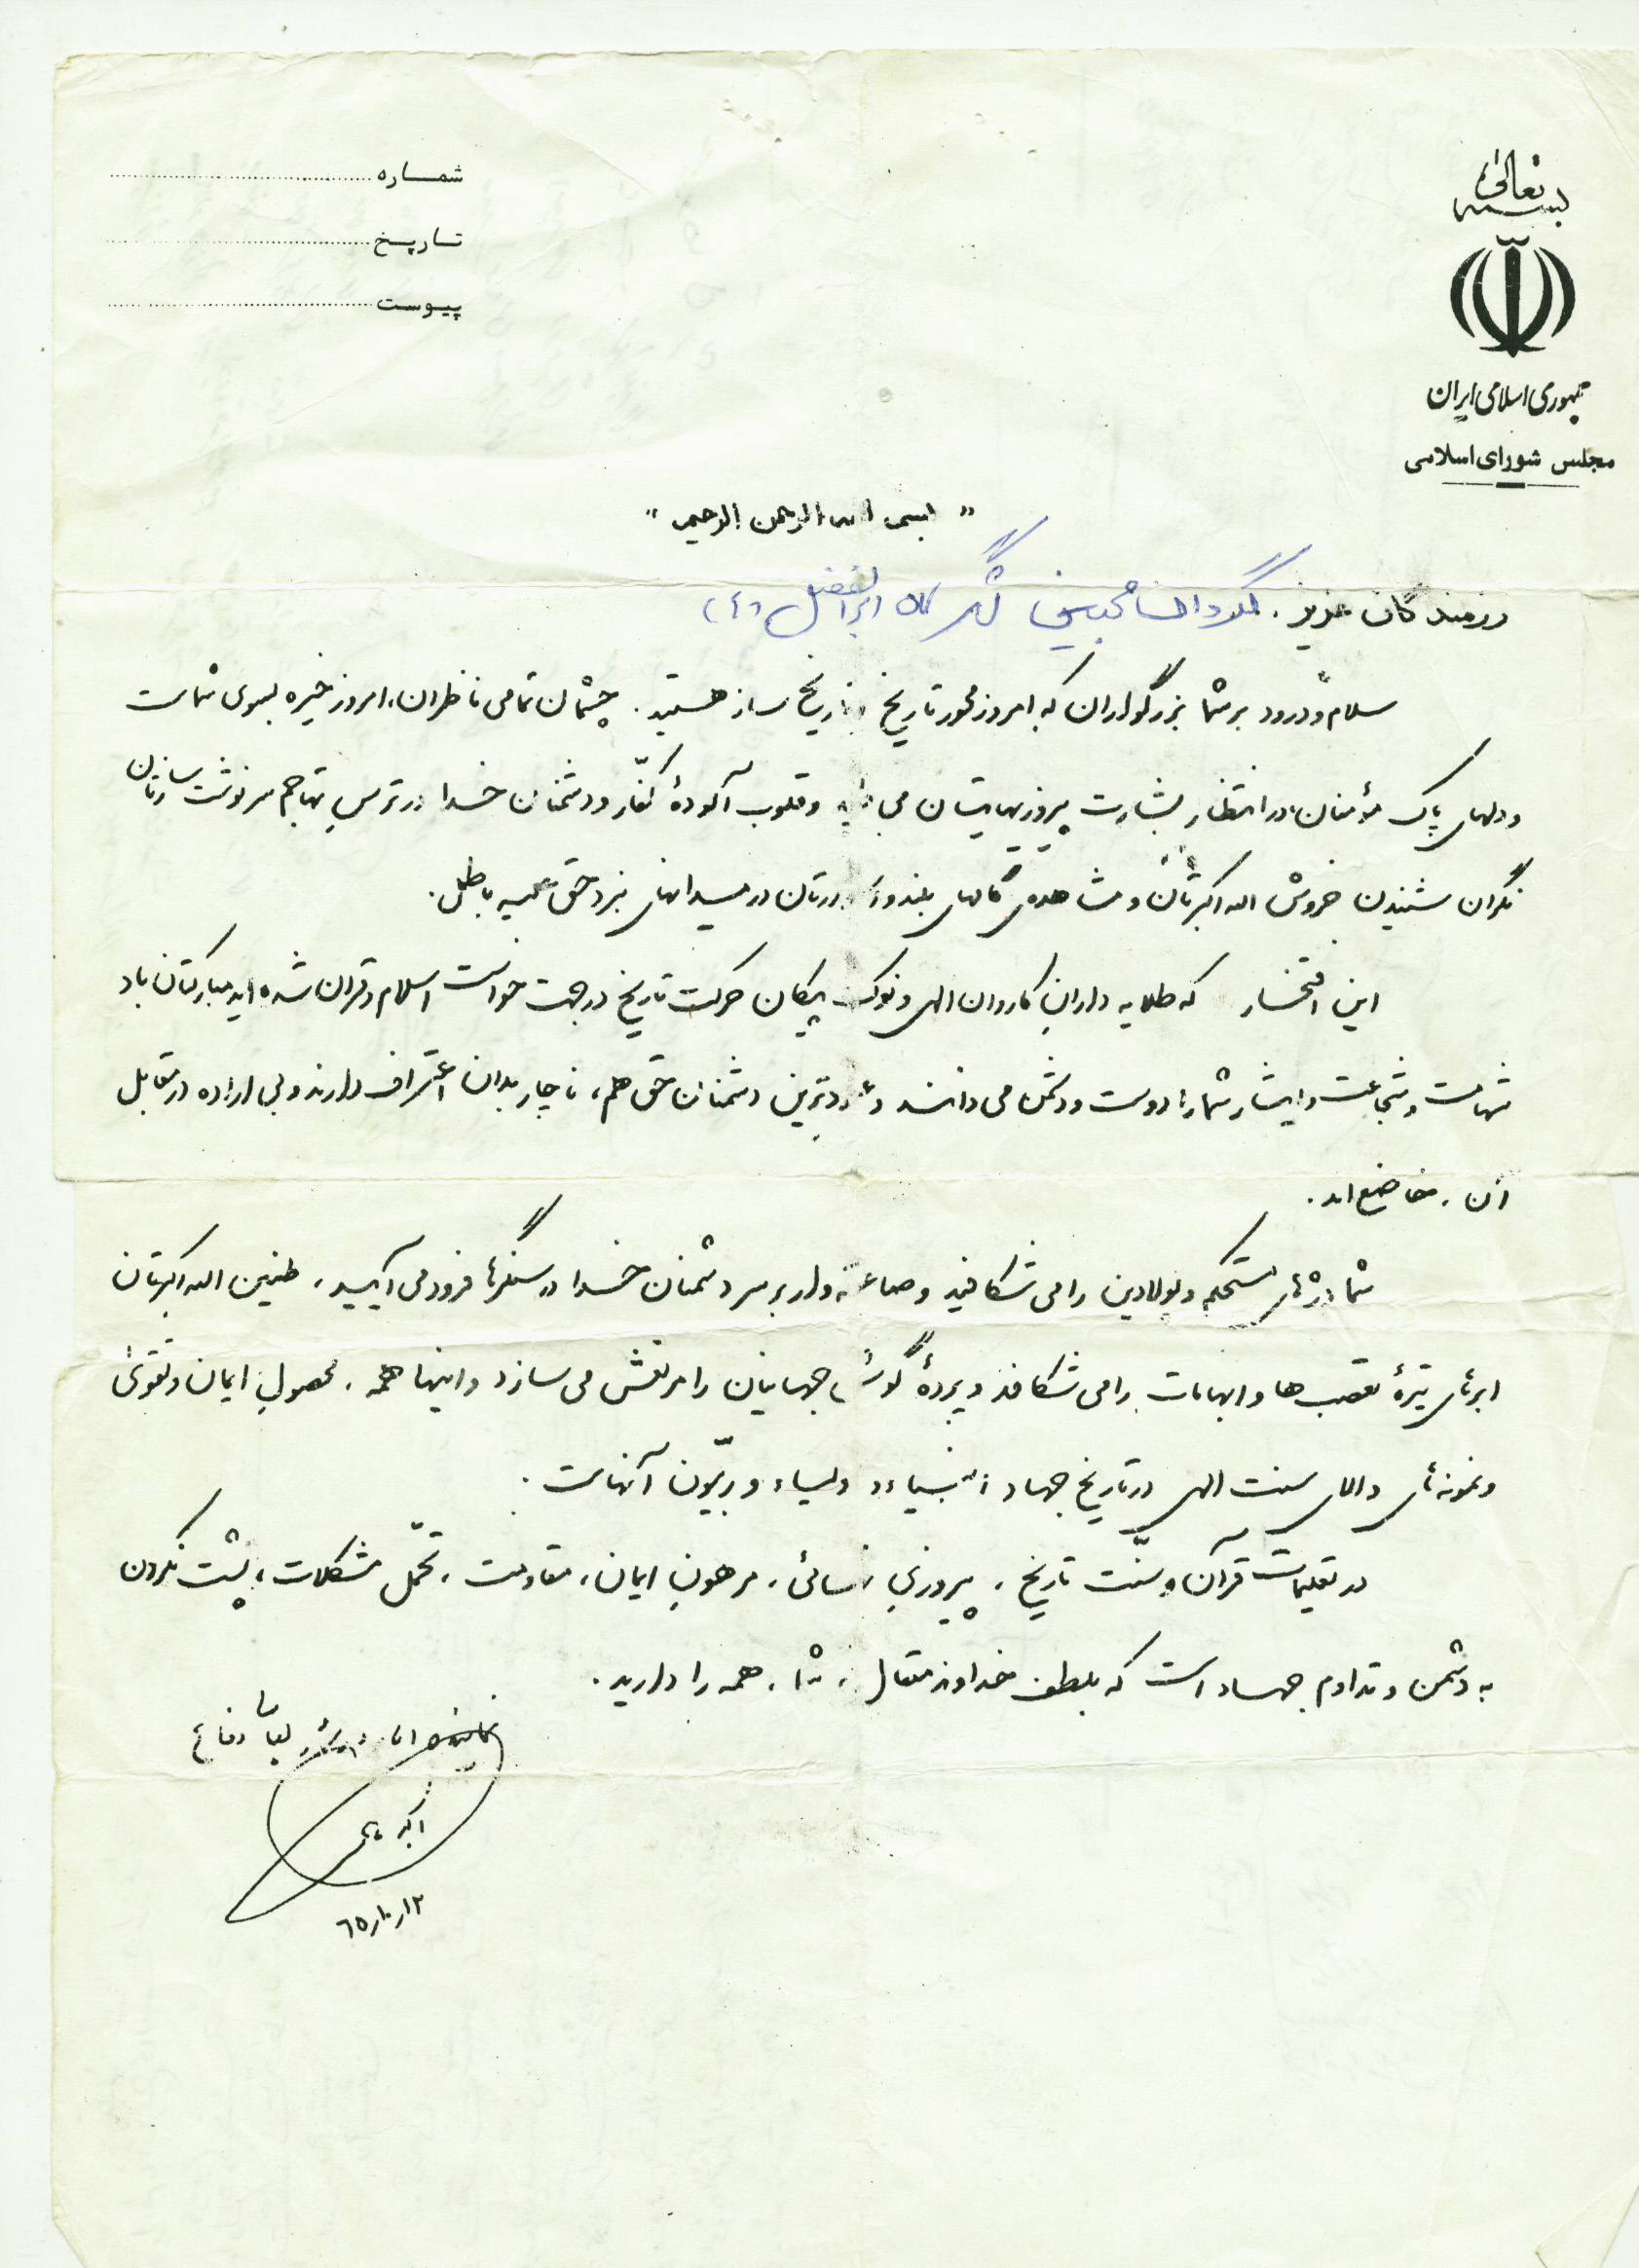 بسمه تعالی
جمهوری اسلامی ایران
مجلس شورای اسلامی
شماره
تاریخ
پیوست
" بسم الله الرحمن الرحیم "
رزمندگان عزیز، گردان مجتبی لشگر ابوالفضل (ع)
سلام و درود بر شما بزرگواران که امروز محور تاریخ و تاریخ ساز هستید. چشمان تمامی ناظران، امروز خیره بسوی شماست
و دلهای پاک مؤمنان، در انتظار بشارت پیروزیهایتان می باشد و قلوب آلودۀ کفّار و دشمنان خدا در ترس تهاجم سرنوشت سازتان
نگران شنیدن خروش الله اکبرتان و مشاهدۀ گامهای بلند و در میدانهای نبرد حق علیه باطل.
این افتخار که طلایه داران کاروان الهی و نوک پیکان حرکت تاریخ در جهت خواست اسلام و قرآن شده اید مبارکتان باد
شهامت و شجاعت و ایثار شما را دوست و دشمن می دانند و دشمنان حق هم، ناچار بدان اعتراف دارند و بی اراده در مقابل
آن، خاضع اند.
شما دژهای مستحکم و پولادین را می شکافید و صاعقه وار بر سر دشمنان خدا در سنگرها فرود می آیید، طنین الله اکبرتان
ابرهای تیرۀ تعصب ها و ابهامات را می شکافد و پردۀ گوش جهانیان را مرتعش می سازد و اینها همه، محصول ایمان و تقوی
و نمونه های والای سنت الهی در تاریخ جهاد انبیاء و اولیاء و ربیّون آنهاست.
در تعلیمات قرآن و سنّت تاریخ، پیروزی نهائی، مرهون ایمان، مقاومت، تحمّل مشکلات، پشت نکردن
به دشمن و تداوم جهاد است که بلطف خداوند متعال، شما، همه را دارید.
نماینده امام در شورایعالی دفاع
اکبر هاشمی
۶۵/۱۰/۱۲